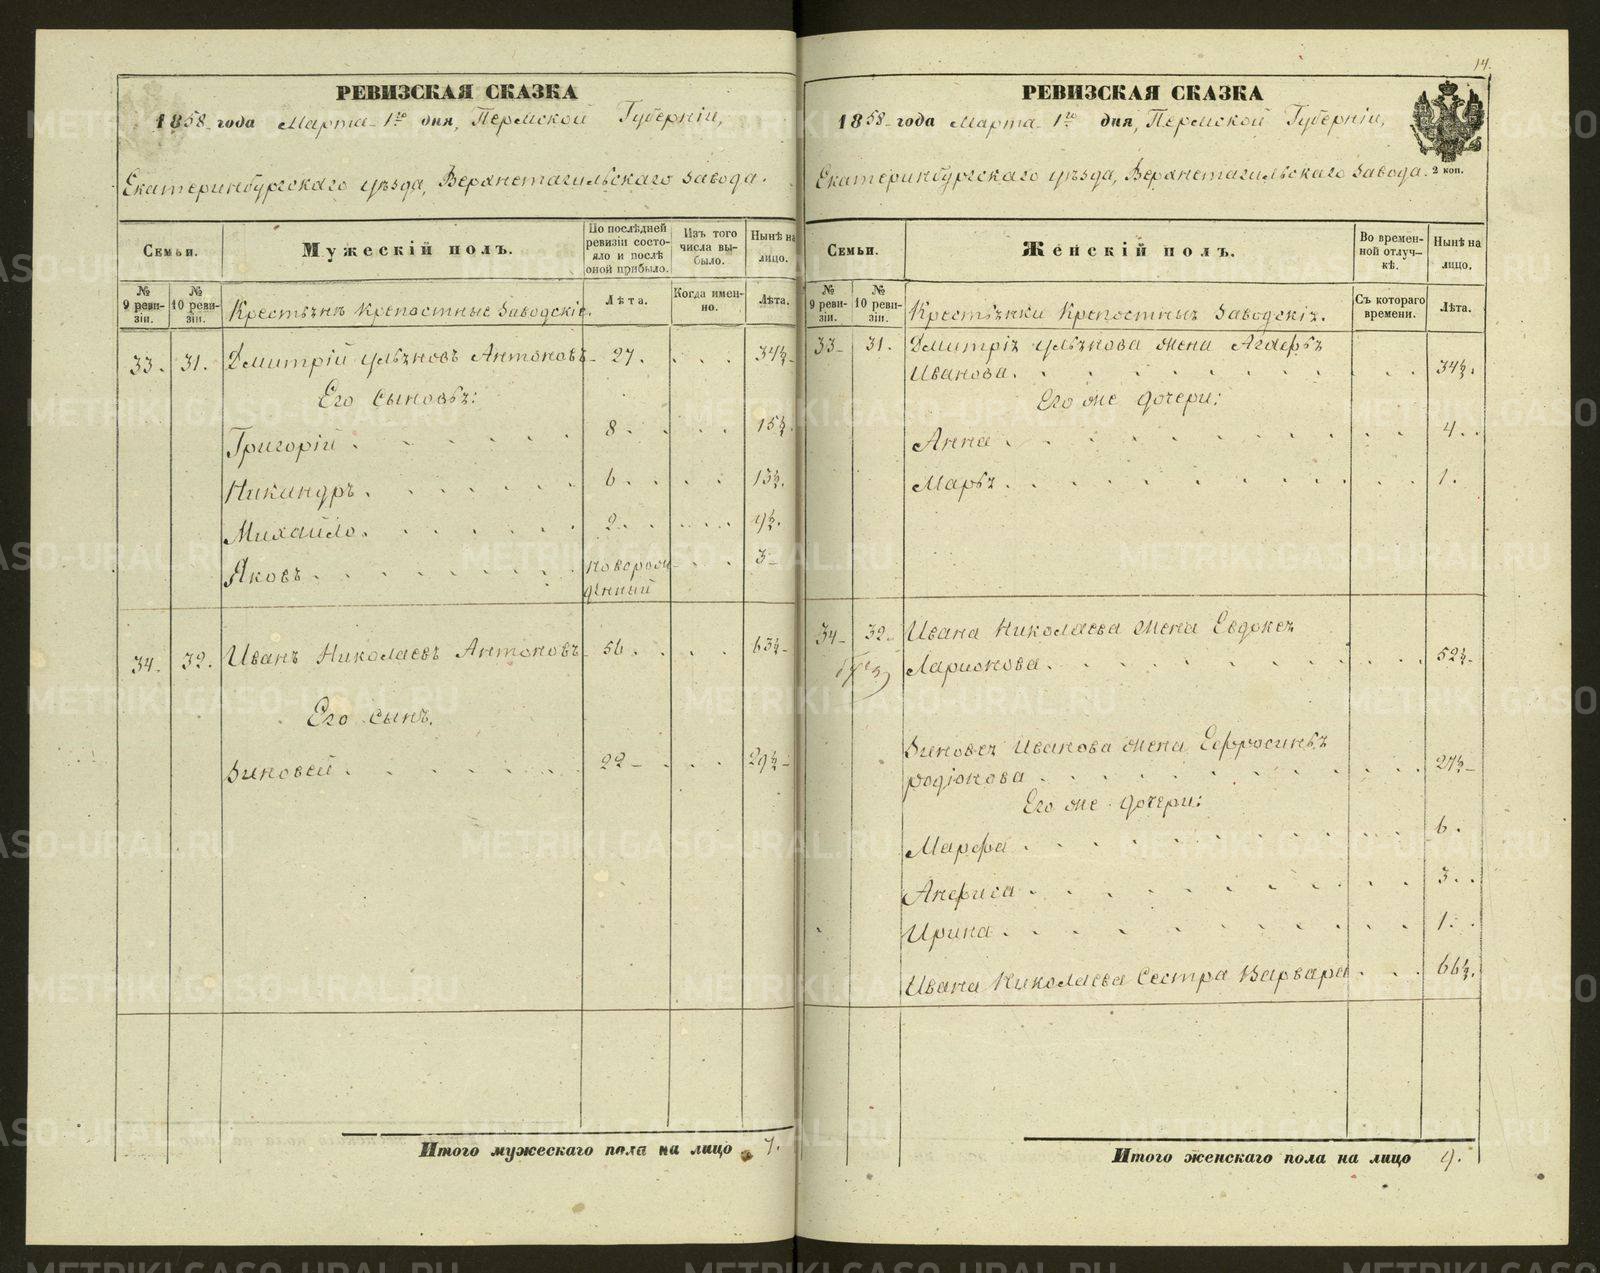 РЕВИЗСКАЯ СКАЗКА
1858 года Марта 1го дня, Пермской Губерніи,
Екатеринбургскаго уѣзда, Верхнетагильскаго завода.
Семьи.
Мужескій полъ.
По послѣдней ревизіи состояло и послѣ оной прибыло.
Изъ того числа выбыло.
Нынѣ на лицо.
№ 9 ревизіи.
№ 10 ревизіи.
Крестьянъ Крепостные Заводскіе.
Лѣта.
Когда именно.
Лѣта.
33. 31. Дмитрій Ульяновъ Антоновъ 27. 34½
Его сыновья:
Григорій 8. 15½.
Никандръ. 6. 13½.
Михайло. 2. 9½.
Яковъ. новорож- 3
денный
34 32. Иванъ Николаевъ Антоновъ 56. 63½
Его сынъ.
Зиновей 22 29½
Итого мужескаго пола на лицо 7.
14.
РЕВИЗСКАЯ СКАЗКА
1858 года Марта 1го дня, Пермской Губерніи,
Екатеринбургскаго уѣзда, Верхнетагильскаго Завода.
2 коп.
Семьи.
Женскій полъ.
Во временной отлучкѣ.
Нынѣ на лицо.
№ 9 ревизіи.
№ 10 ревизіи.
Крестьянки Крепостныя Заводскія.
Съ котораго времени.
Лѣта.
33 31. Дмитрія Ульянова жена Агафья
Иванова. 34½.
Его же дочери:
Анна 4.
Марья 1.
34 32 Ивана Николаева жена Евдокея
Ларионова. 52½.
Зиновея Иванова жена Ефросинья
родіонова 27½
Его же дочери:
Марфа 6.
Анфиса 3.
Ирина. 1.
Ивана Николаева Сестра Варвара 66½.
Итого женскаго пола на лицо 9.
METRIKI.GASO-URAL.RU